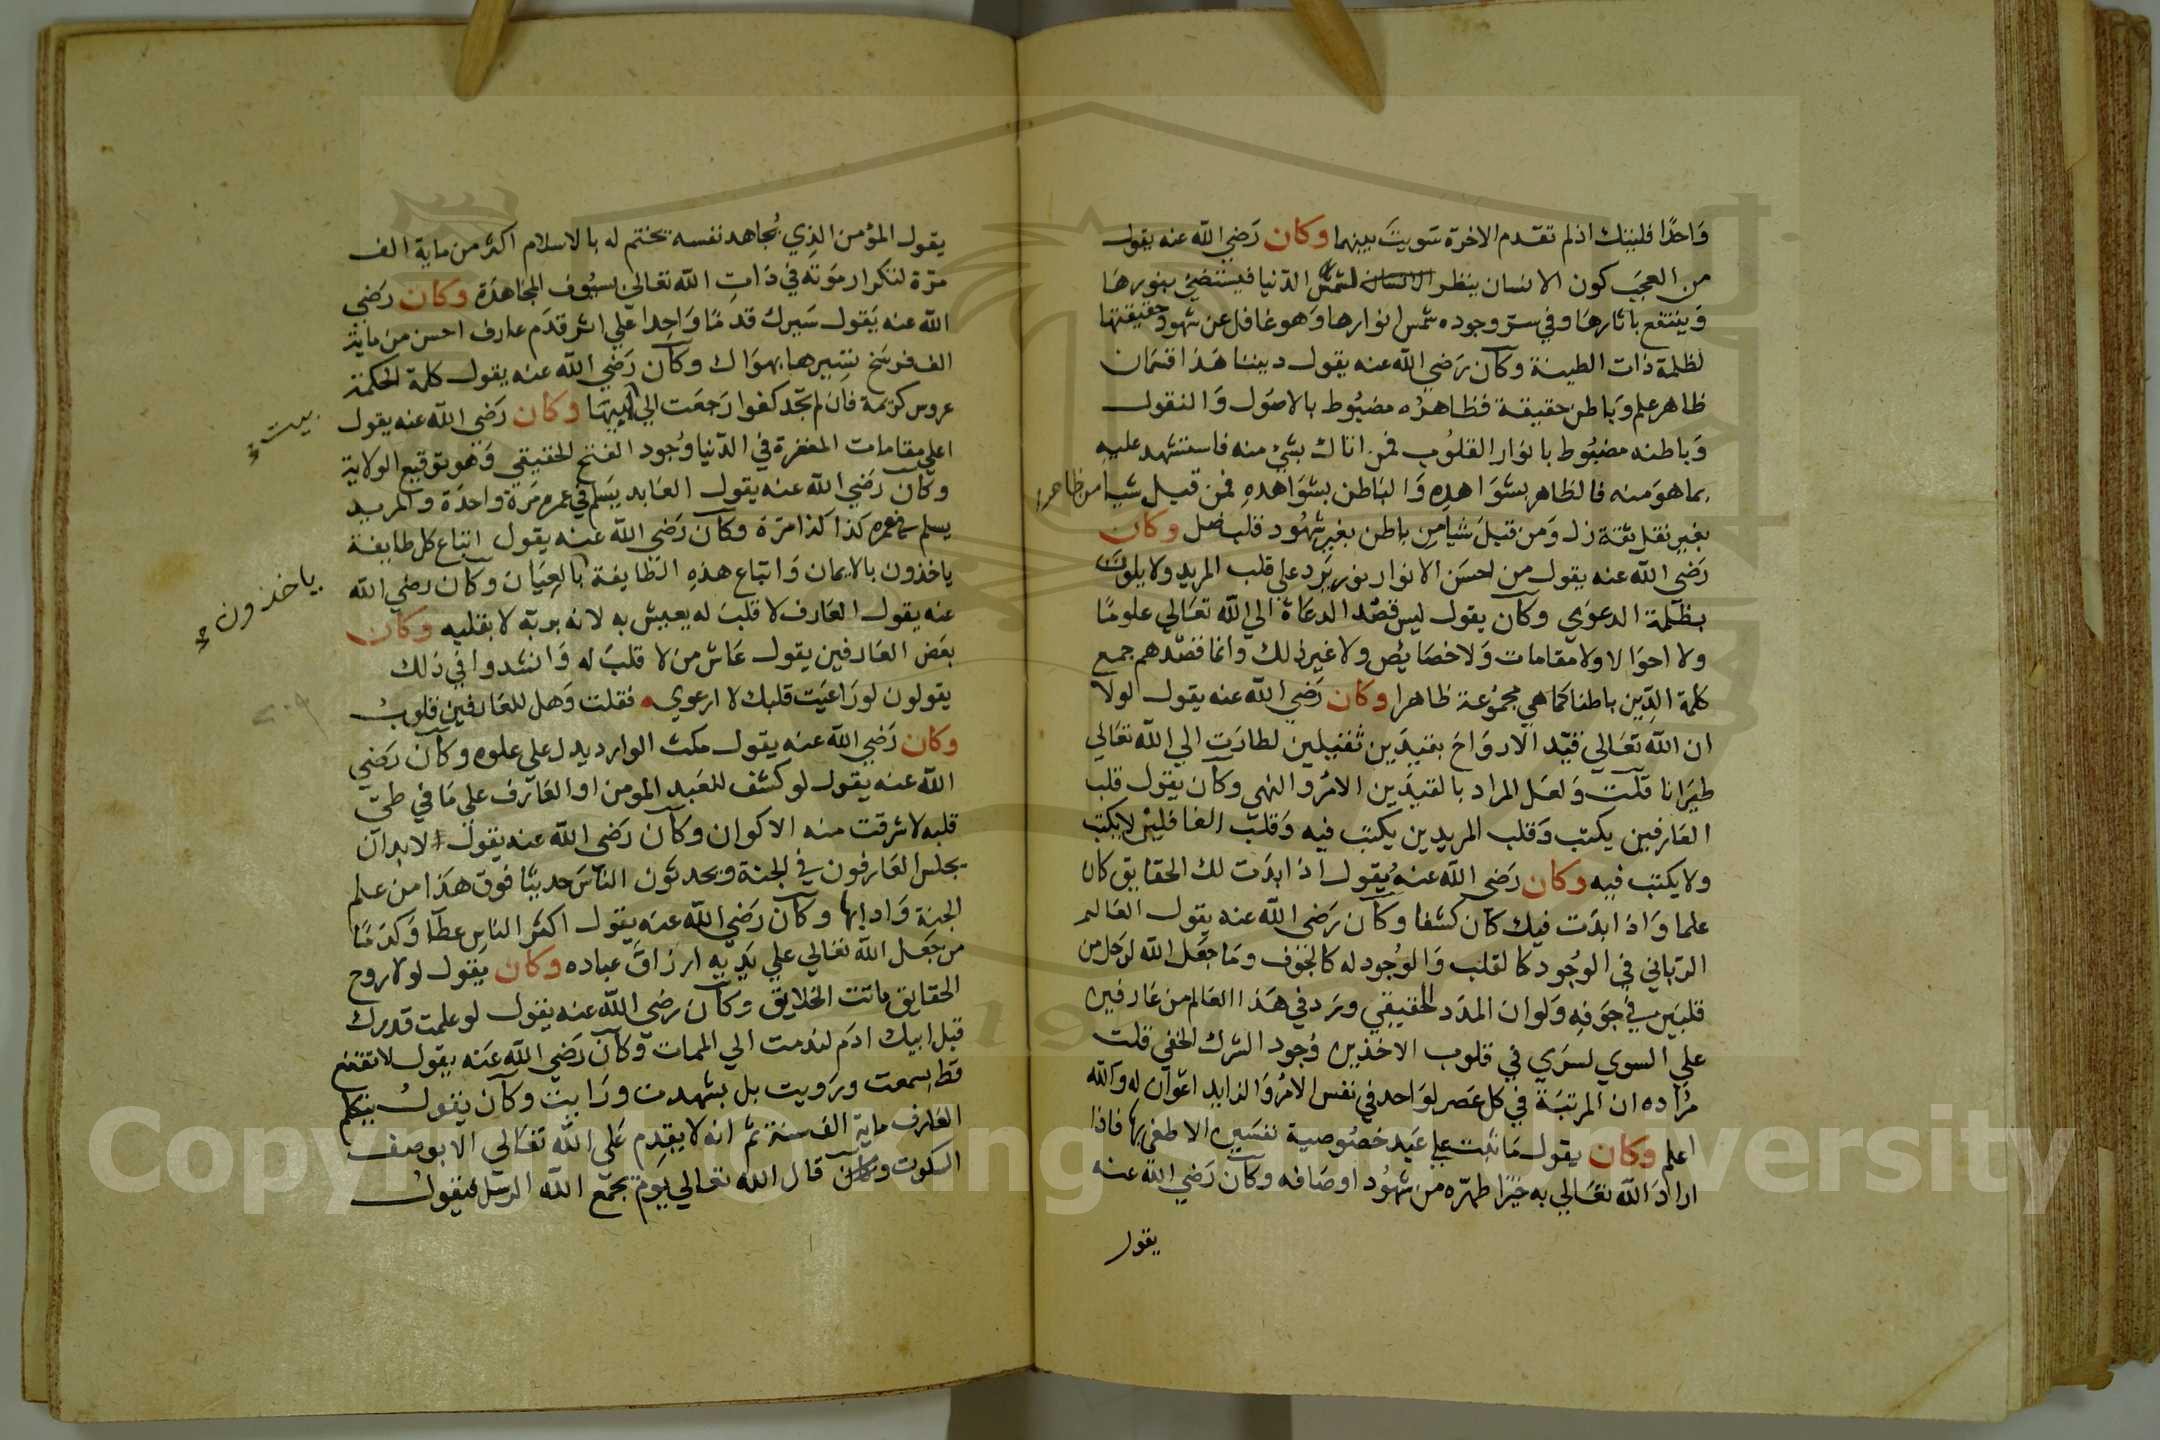 وَاحدًا فليتك اذ لم تقدم الاخرة سَويتَ بينهما وكان رَضي الله عنه يقول
من العجب كون الانسان ينظر لشمس الدّنيا فيستضئ بنورهَا
وَينتفع باثارهَا وفي سرّ وجوده شمس انوارها وَهو غافل عن شهود حقيقتها
لظلمة ذات الطينة وكان رَضي الله عنه يقول ديننا هَذا قسمان
ظاهر علم وَباطن حقيقة فظاهرُه مضبُوط بالاصُول وَالنقول
وَباطنه مضبُوط بانوَار القلُوب فمن اتاك بشئ منه فاستشهد عليه
بما هوَ منه فالظاهر بشوَاهدهِ وَالبَاطن بشوَاهدهِ فمن قبل شيأ من ظاهر
بغير نقل ثقة زل وَمن قبلَ شيأ من باطن بغير شهُود قلب ضل وكان
رَضي الله عنه يقول من احسَن الانوار نور يَرد على قلب المريد ولا يلوث
بظلمة الدعوَي وكان يقول ليس قصْد الدعَاة الي الله تعَالي علومًا
ولا احوَالا ولا مقامات وَلا خصَايصُ ولا غير ذلك وانما قصْدهم جمع
كلمة الدّين باطنا كما هي مجمُوعة ظاهرا وكان رَضي الله عنه يقول لولا
ان الله تعَالي قيّد الارواحَ بقيدَين ثقيلين لطارَت الي الله تعَالي
طيرَانا قلت وَلعَل المراد بالقيدَين الامرُ والنهي وكان يقول قلب
العَارفين يكتب وَقلب المريدين يكتب فيه وَقلبُ الغافلين لا يكتب
ولا يكتب فيه وكان رَضي الله عنه يُقول اذا ابدَت لك الحقايق كان
علما وَاذا ابدَت فيك كان كشفا وكان رَضي الله عنه يقول العَالم
الرّباني في الوجُود كالقلب وَالوجُود له كالجوف وَمَا جعَل الله لرَجل من
قلبَين في جَوفهِ وَلو ان المدَد الحقيقي وَرَد في هَذا العَالم من عَارفين
علي السوي لسرَي في قلوب الاخذين وُجود الشرك الخفي قلت
مرَاده ان المرتبَة في كل عَصر لوَاحد في نفس الامرُ وَالزايد اعوَان له وَالله
اعلم وكان يقول مَا علي عَبد خصُوصية نفسَين الا طغي بها فاذا
ارادَ الله تعَالي به خيرًا طهرّه من شهُود اوصَافه وكان رَضي الله عنه
يقول
يقول المؤمن الذِي يُجاهد نفسه يختم له بالاسلام اكثر من ماية الف
مرّة لتكرار مَوته في ذاتِ الله تعَالي بسيُوف المجَاهدَة وكان رَضي
الله عنه يَقول سَيرك قدمًا وَاحِدا علي اثر قدَم عارف احسن من ماية
الف فرسَخ تسيرها بهوَاك وكان رَضي الله عنه يقول كلمة الحكمة
عروس كريمة فان لم تجد كفوا رَجعَت الي ابيهَا وكان رَضي الله عنه يقول
بيت
اعلي مقامات المغفرة في الدّنيا وُجود الفتح الحقيقي وَهو توقيع الولاية
وكان رَضي الله عنه يقول العَابد يَسلم في عمره مَرّة واحدَة وَالمريد
يسلم في عمره كذا كذا مرّة وكان رَضي الله عنه يقول اتباع كل طايفة
ياخذون بالايمان وَاتباع هذهِ الطايفة بالعيَان وكان رضي الله
ياخذون
عنه يقول العَارف لا قلبَ له يعيش به لانه بربّه لا بقلبه وكان
بَعض العَارفين يقول عَاش من لا قلبَ له وَانشدوا في ذلك
يقولون لو رَاعيَت قلبك لا ارعوي فقلت وَهل للعَارفين قلوبُ
وكان رَضي الله عنه يقول مكث الوارد يدل علي علوه وكان رَضي
الله عنه يقول لو كشف للعَبد المومن او العَارف علي مَا في طيّ
قلبه لاشرقت منه الاكوان وكان رَضي الله عنه يقول لابد ان
يجلس العَارفون في الجنة ويحدثون النّاسَ حديثا فوق هَذا من علم
الجنة وَادابها وكان رَضي الله عنه يَقول اكثرَ الناس عطآ وَكرمًا
من جَعَل الله تعَالي علي يَديه ارزاقَ عباده وكان يَقول لولا روح
الحقايق ماتت الخلايق وكان رَضي الله عنه يقول لو علمت قدرك
قبل ابيك ادَم لندمت الي الممات وكان رَضي الله عَنه يقول لا تقنع
قط بسمعت ورَويت بل بشهدت وَرَايت وكان يَقولُ يتكلم
العَارف ماية الف سنة ثم انه لا يقدِم عَلى الله تعَالي الا بوصف
السكوت وكان قال الله تعالي يَومَ يجمَع الله الرسل فيقولُ
Copyright © King Saud University